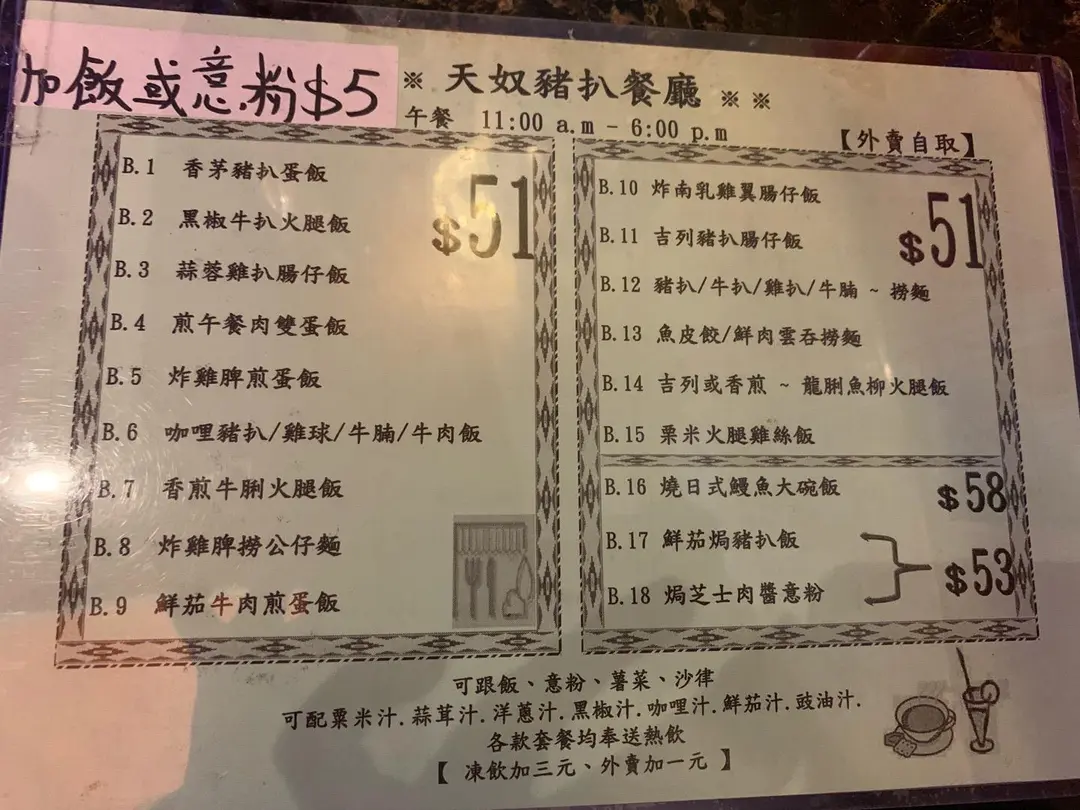 加飯或意粉$5
※ 天奴豬扒餐廳 ※ ※
午餐 11:00 a.m - 6:00 p.m
【外賣自取】
B.1 香茅豬扒蛋飯
B.2 黑椒牛扒火腿飯
$51
B.3 蒜蓉雞扒腸仔飯
B.4 煎午餐肉雙蛋飯
B.5 炸雞脾煎蛋飯
B.6 咖哩豬扒/雞球/牛腩/牛肉飯
B.7 香煎牛脷火腿飯
B.8 炸雞脾撈公仔麵
B.9 鮮茄牛肉煎蛋飯
B.10 炸南乳雞翼腸仔飯
B.11 吉列豬扒腸仔飯
$51
B.12 豬扒/牛扒/雞扒/牛腩 ~ 撈麵
B.13 魚皮餃/鮮肉雲吞撈麵
B.14 吉列或香煎 ~ 龍脷魚柳火腿飯
B.15 粟米火腿雞絲飯
B.16 燒日式鰻魚大碗飯 $58
B.17 鮮茄焗豬扒飯
$53
B.18 焗芝士肉醬意粉
可跟飯、意粉、薯菜、沙律
可配粟米汁.蒜茸汁.洋蔥汁.黑椒汁.咖哩汁.鮮茄汁.豉油汁.
各款套餐均奉送熱飲
【 凍飲加三元、外賣加一元 】